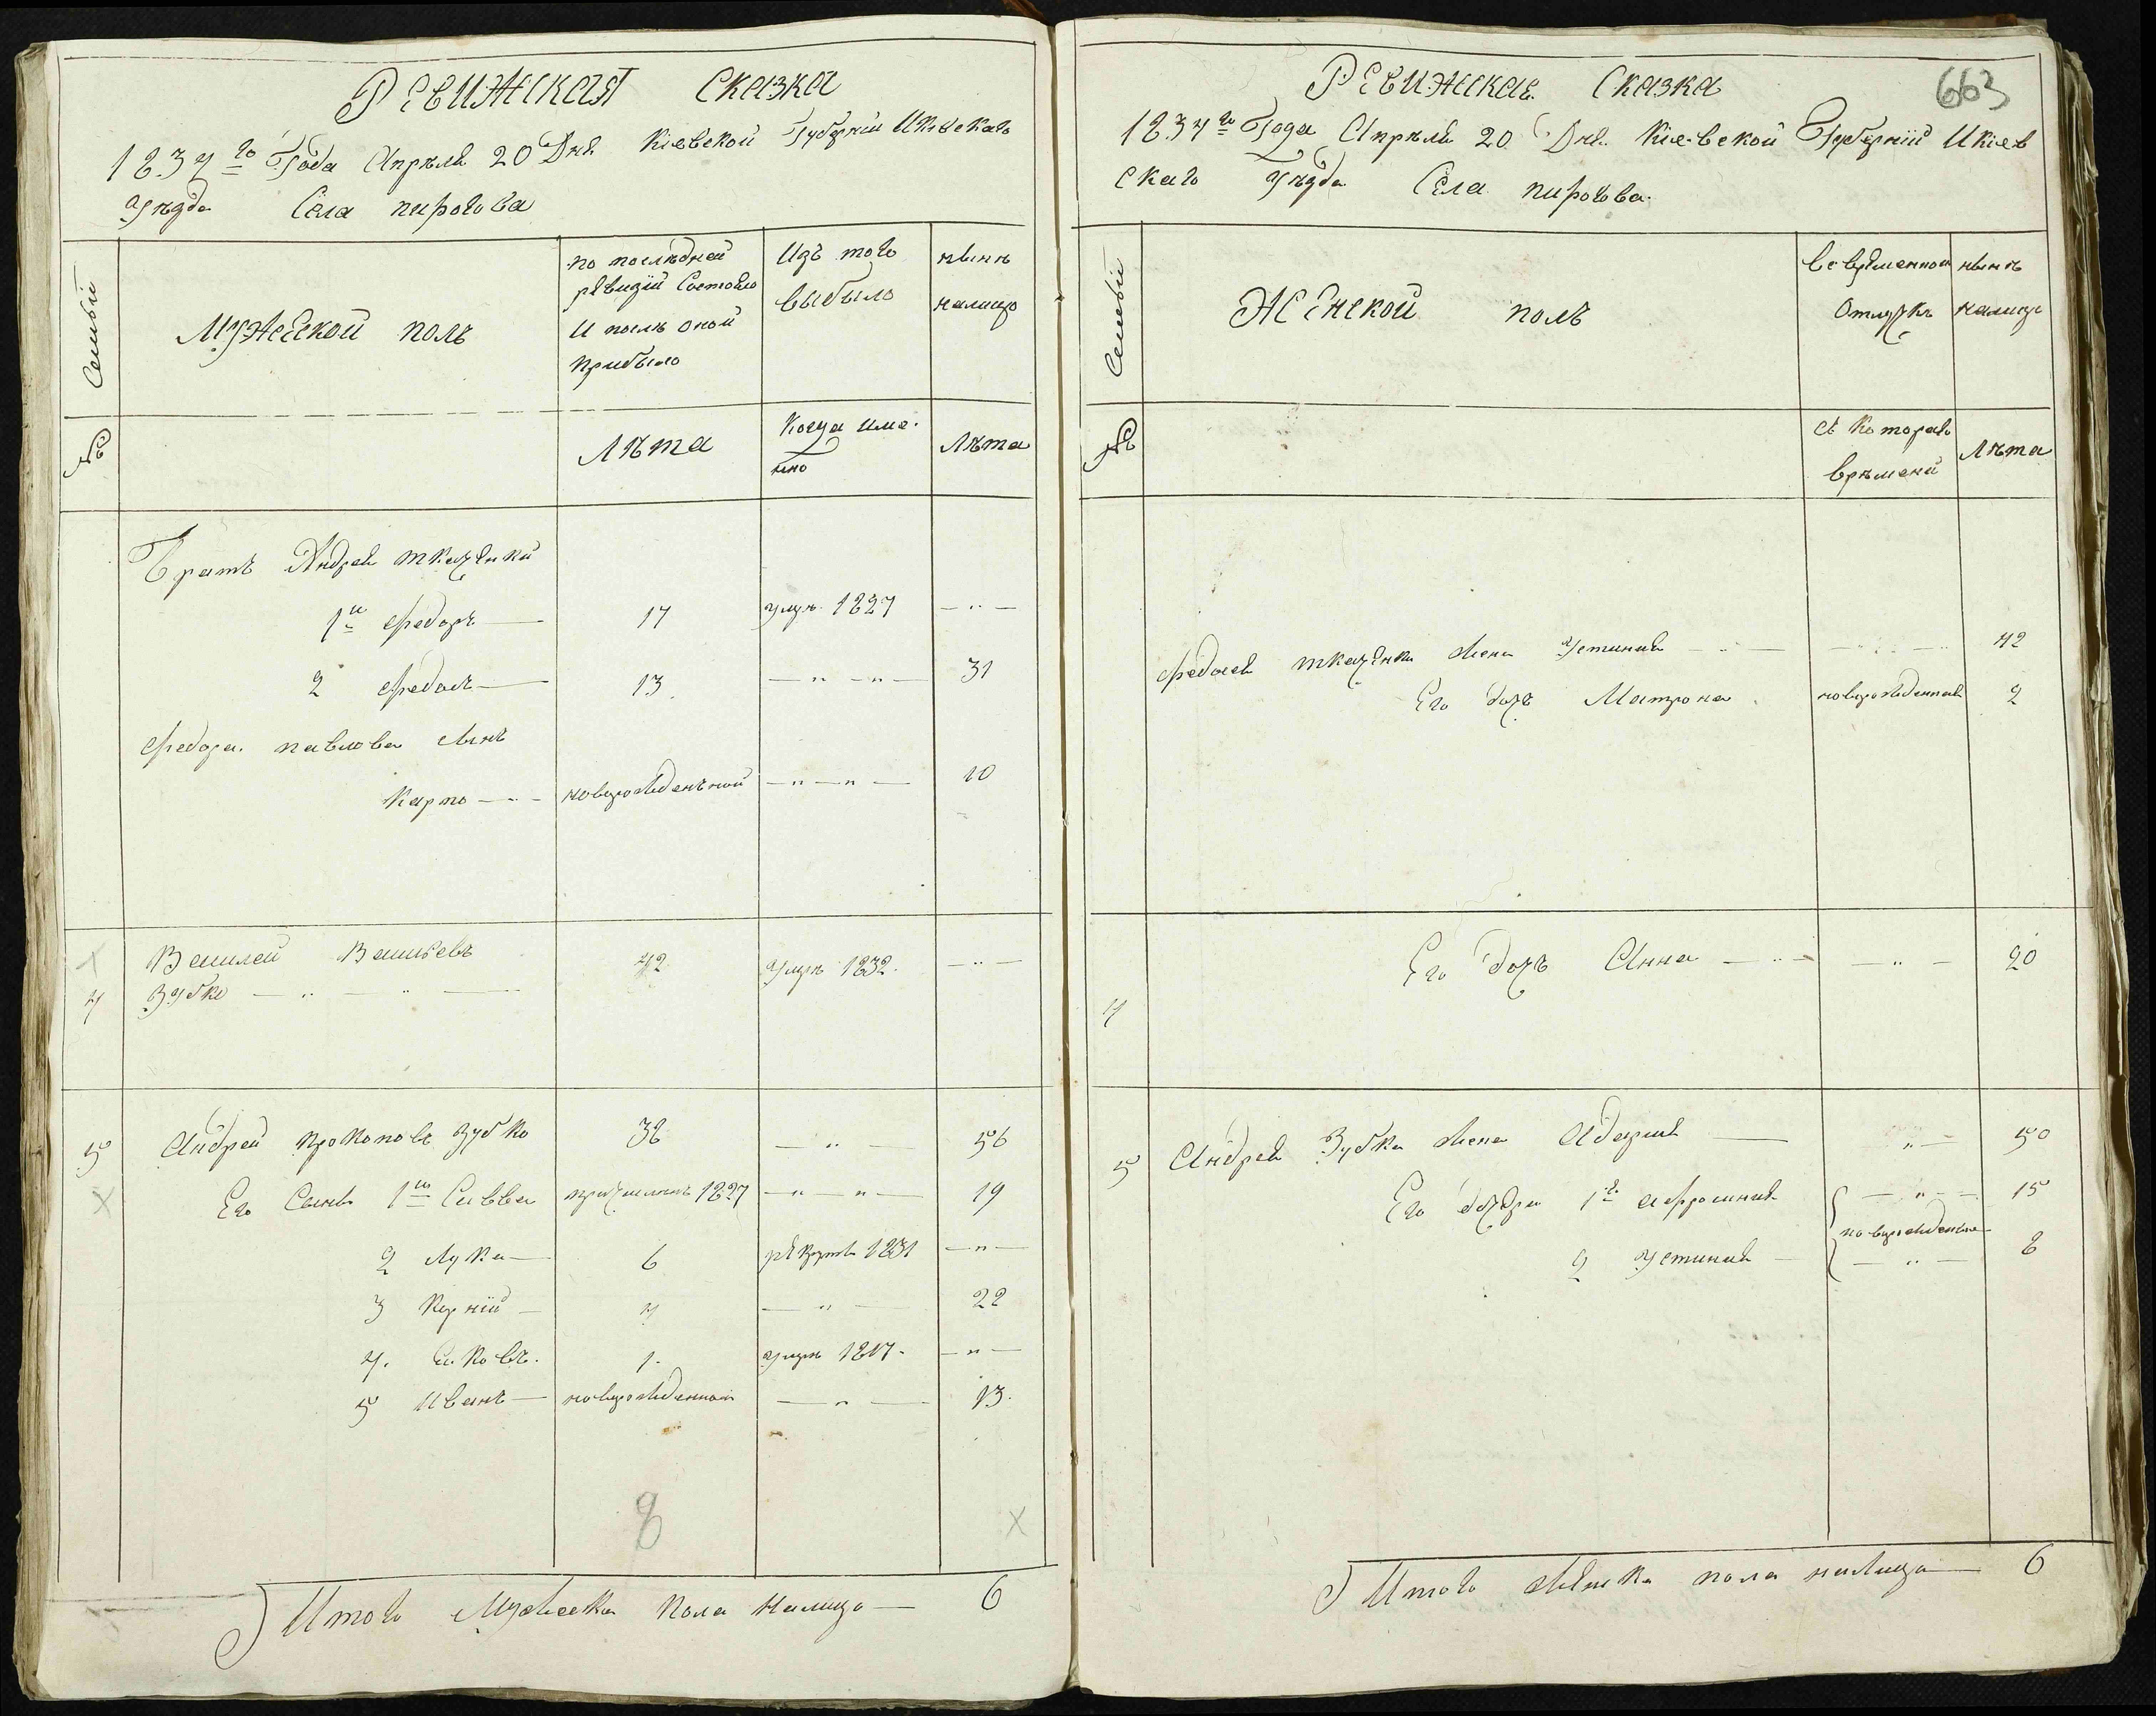 Ревижская Сказка
1834го Года Апреля 20 Дня Кіевской Губерніи Икіевскаго
уѣзда Села пирогова
Семьи
Мужеской полъ
по послѣдней
ревизіи Состояло
и послѣ оной
прибыло
Изъ того
выбыло
нынѣ
налицо
№
Лѣта
Когда име
нно
Лѣта
Братъ Андрея ткаченки
1й Федоръ 17 умре 1827 — " —
2 Федосъ 13 — " — " — 31
Федора павлова сынъ
Карпо — новорожденной — " — " — 10
Василей Васильевъ 42 умре 1832. — " —
4 Зубко — " — " —
5 Андрей прокоповъ Зубко 36 — " — 56
Его Сынъ 1й Савва 1827 — " — " — 19
2 Лука 6 рекрутъ 1831 — " —
3 Корній 4 — " — 22
4. Яковъ. 1. умре 1817. — " —
5 иванъ новорожденной — " — 13.
8
Итого Мужеска пола налицо — 6
663
Ревижская Сказка
1834го Года Апреля 20 Дня Кіевской Губерніи Икіев
скаго уѣзда Села пирогова.
Семьи
Женской полъ
во временной
отлучкѣ
нынѣ
налицо
№
съ котораго
времени
Лѣта
Федосея ткаченка жена Устинія — " — 42
Его дочь Матрона новорожденная 2
Его дочь Анна — " — — " — 20
4
5 Андрея Зубка жена — " — 50
Его дочери 1я Афросинія — " — 15
новорожденные
2 Устинія — " — 8
Итого женска пола налицо — 6